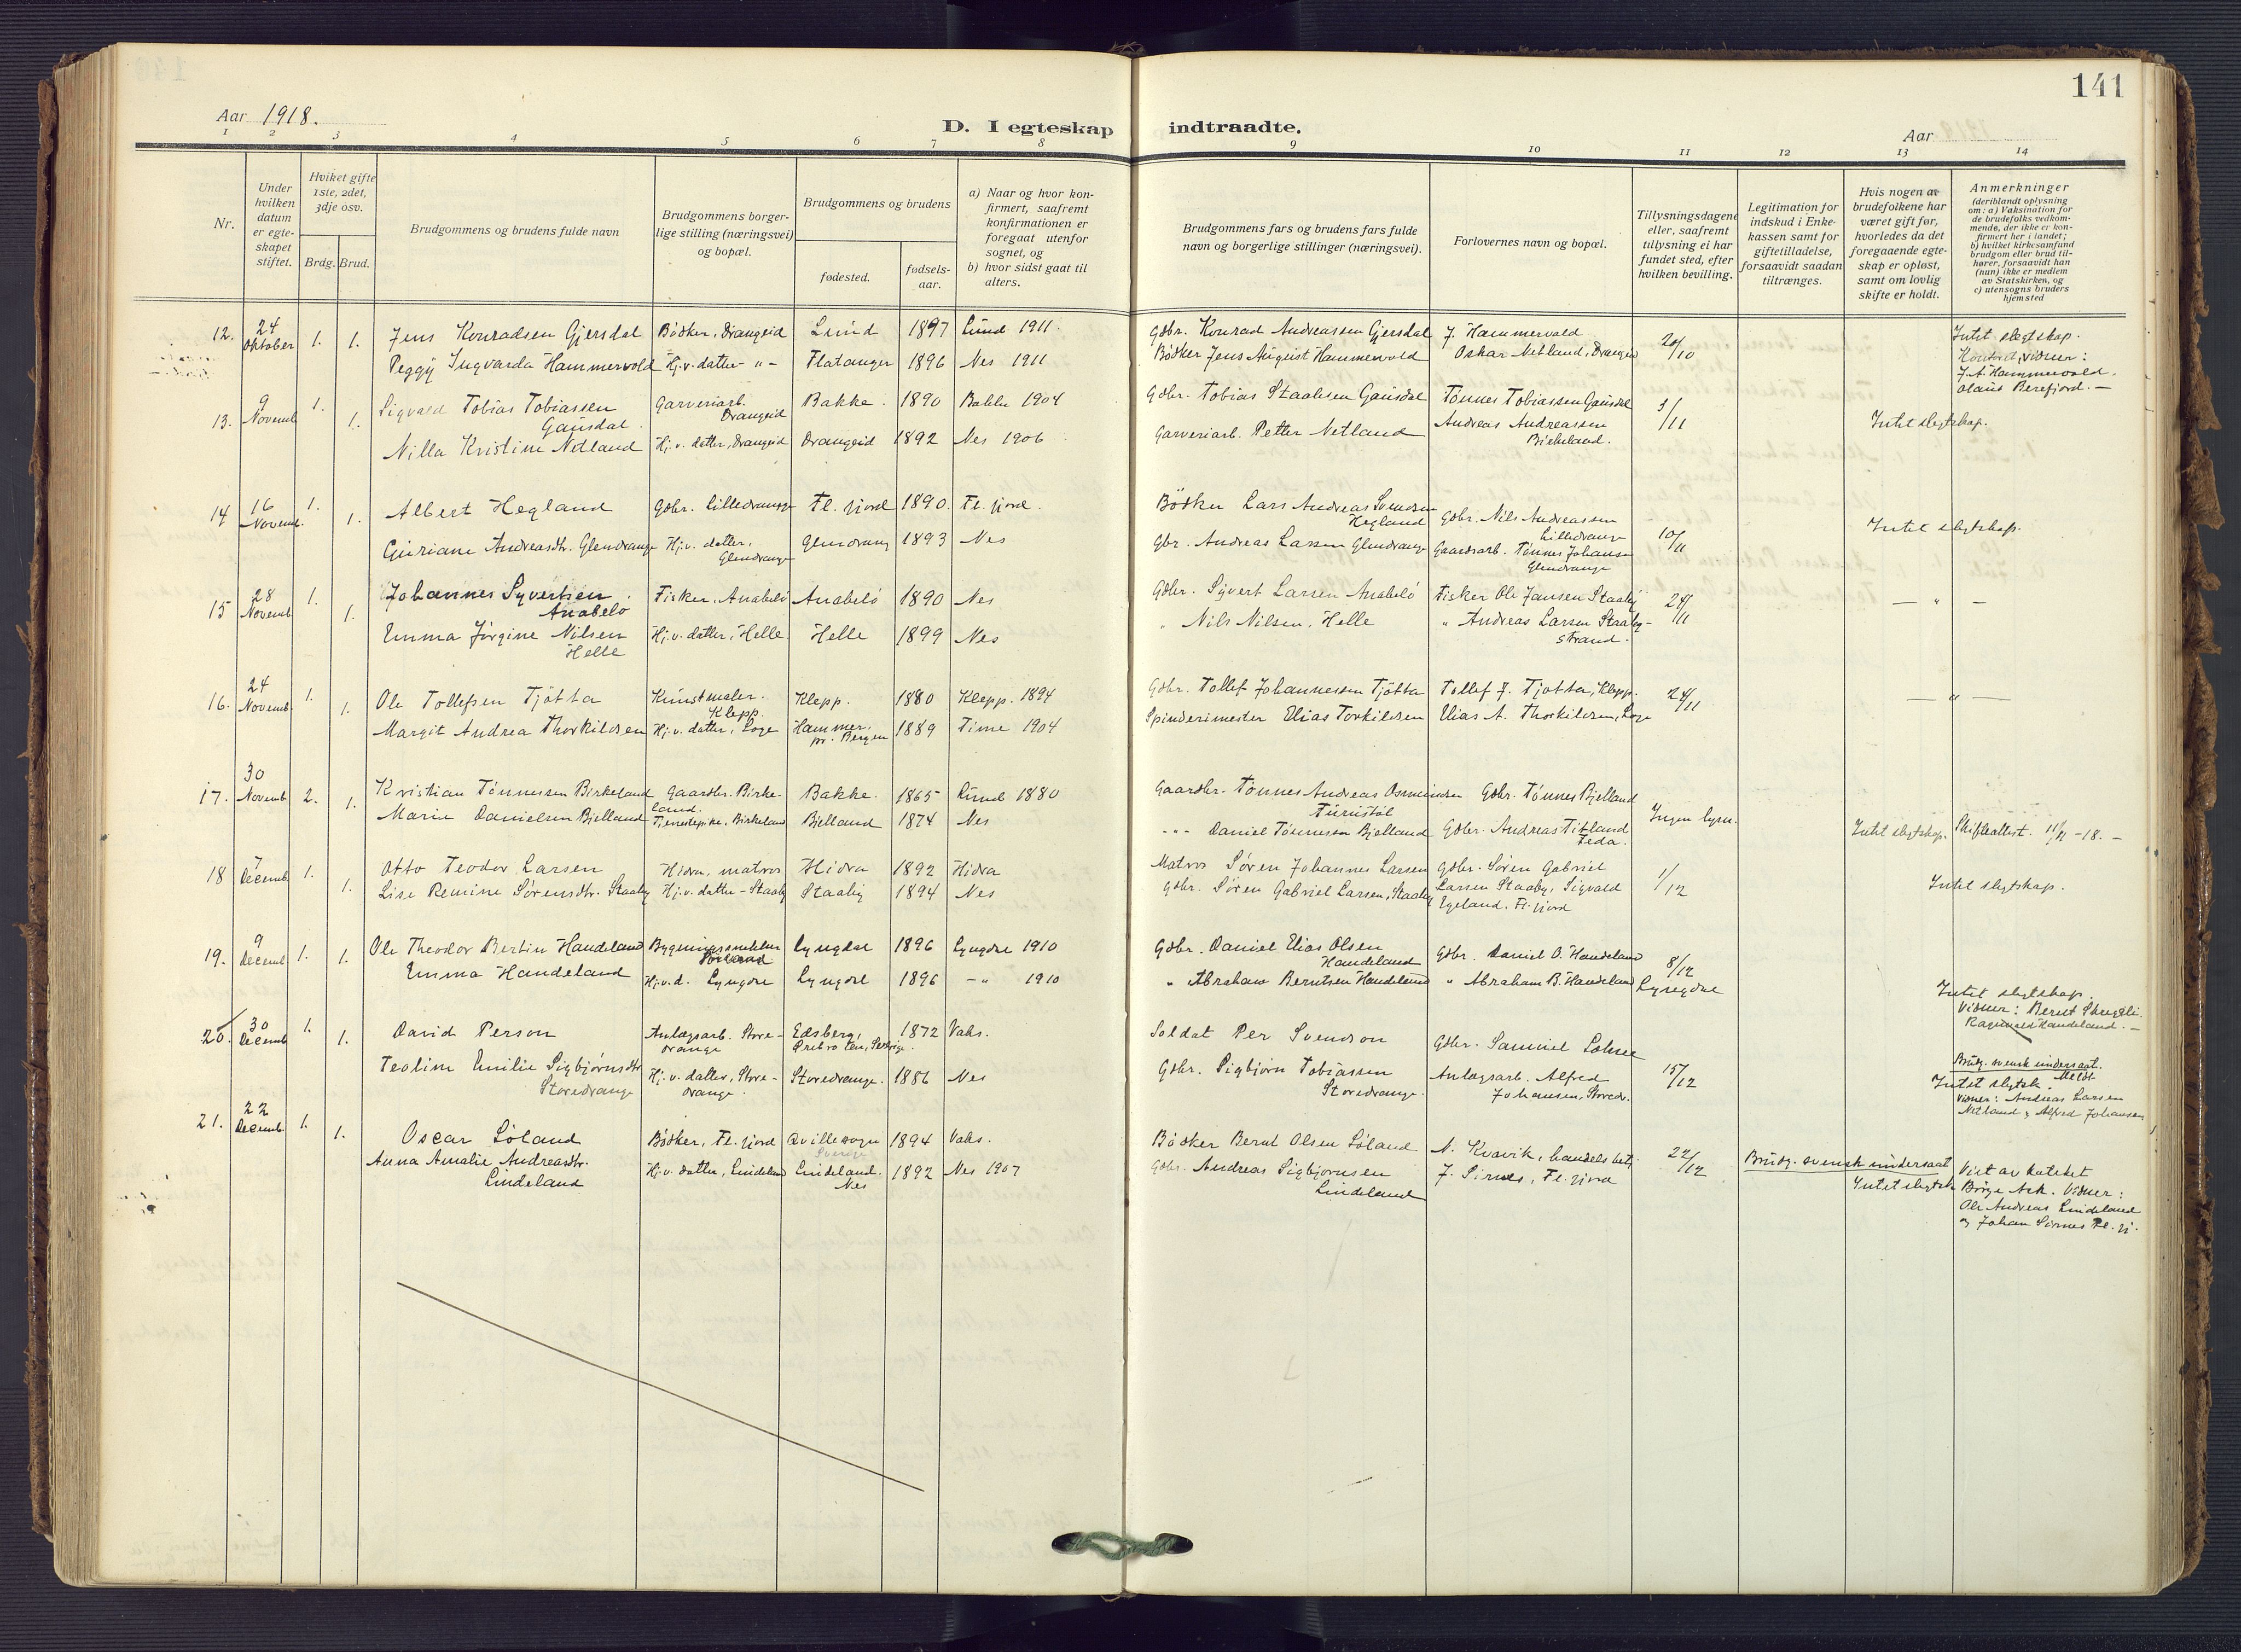 141
Aar 1918.
D. I egteskap indtraadte.
Aar
1 2 3 4 5 6 7 8 9 10 11 12 13 14
Nr.
Under hvilken datum er egteskapet stiftet.
Hvilket gifte 1ste, 2det, 3dje osv.
Brdg. Brud.
Brudgommens og brudens fulde navn
Brudgommens borgerlige stilling (næringsvei) og bopæl.
Brudgommens og brudens
fødested.
fødselsaar.
a) Naar og hvor konfirmert, saafremt konfirmationen er foregaat utenfor sognet, og
b) hvor sidst gaat til alters.
Brudgommens fars og brudens fars fulde navn og borgerlige stillinger (næringsvei).
Forlovernes navn og bopæl.
Tillysningsdagene eller, saafremt tillysning ei har fundet sted, efter hvilken bevilling.
Legitimation for indskud i Enkekassen samt for giftetilladelse, forsaavidt saadan tiltrænges.
Hvis nogen av brudefolkene har været gift før, hvorledes da det foregaaende egteskap er opløst, samt om lovlig skifte er holdt.
Anmerkninger (deriblandt oplysning om: a) Vaksination for de brudefolks vedkommende, der ikke er konfirmert her i landet; b) hvilket kirkesamfund brudgom eller brud tilhører, forsaavidt han (hun) ikke er medlem av Statskirken, og c) utensogns bruders hjemsted
12. 24 Oktober 1. 1. Jens Konradsen Gjersdal Bødker, Drangeid Lund 1897 Lund 1911. Gdbr. Konrad Andreassen Gjersdal J. Hammervold 20/10 Intet slegtskap.
Peggy Ingvarda Hammervold Hj.v. datter -"- Flatanger 1896 Nes 1911 Bødker Jens August Hammervold Oskar Netland, Drangeid
Vidner:
J. A. Hammervold.
Olaus Berefjord. —
13. 9 Novemb. 1. 1. Sigvald Tobias Tobiassen Gausdal. Garveriarb. Drangeid Bakke. 1890 Bakke 1904 Gdbr. Tobias Staalesen Gausdal Tønnes Tobiassen Gausdal 3/11 Intet slegtskap.
Nilla Kristine Netland Hj.v. datter, Drangeid Drangeid 1892 Nes 1906 Garveriarb. Petter Netland Andreas Andreassen Birkeland.
14 16 Novemb. 1. 1. Albert Hegland Gdbr. Lilledrange Fl. fjord 1890. Fl. fjord. Bødker Lars Andreas Svendsen Hegland Gdbr. Nils Andreassen Lilledrange 10/11 Intet slegtskap.
Guriane Andreasdtr. Glendrange Hj.v. datter, Glendrange Glendrang 1893 Nes Gbr. Andreas Larsen Glendrange Gaardsarb. Tønnes Johansen Glendrange
15 28 Novemb. 1. 1. Johannes Syvertsen Anabelø Fisker, Anabelø Anabelø 1890 Nes Gdbr. Sijvert Larsen Anabelø Fisker Ole Jansen Staaby 24/11 — " —
Emma Jørgine Nilsen Helle Hj.v. datter, Helle Helle 1899 Nes " Nils Nilsen, Helle " Andreas Larsen Staabystrand.
16. 24 Novemb. 1. 1. Ole Tollefsen Tjøtta Kunstmaler. Klepp. Klepp. 1880 Klepp. 1894 Gdbr. Tollef Johannessen Tjøtta Tollef J. Tjøtta, Klepp. 24/11 — " —
Margit Andrea Thorkildsen Hj.v. datter, Loge Hammer pr. Bergen 1889 Time 1904 Spinderimester Elias Torkildsen Elias A. Thorkildsen, Loge
17. 30 Novemb. 2. 1. Kristian Tønnessen Birkeland Gaardbr. Birkeland. Bakke. 1865 Lund 1880 Gaardbr. Tønnes Andreas Osmundsen Gdbr. Tønnes Bjelland Ingen lysn. Intet slegtskap. Skifteattest. 11/11 -18. —
Marie Danielsen Bjelland Tjenestepike, Birkeland Bjelland 1874 Nes -"- Daniel Tønnessen Bjelland Gdbr. Andreas Titland Feda.
18 7 Decemb. 1. 1. Otto Teodor Larsen Hidra, matros Hidra 1892 Hidra Matros Søren Johannes Larsen Gdbr. Søren Gabriel 1/12 Intet slegtskap.
Lise Remine Sørensdtr. Staaby Hj.v. datter - Staaby Staaby 1894 Nes Gdbr. Søren Gabriel Larsen, Staaby Larsen Staaby, Sigvald Egeland, Fl. fjord
19. 9 Decemb 1. 1. Ole Theodor Bertin Handeland Bygningssnekker Lyngdal 1896 Lyngdal 1910 Gdbr. Daniel Elias Olsen Handeland Gdbr. Daniel O. Handeland 8/12 Lyngdal
Emma Handeland Hj.v.d. Lyngdal Lyngdal 1896 -"- 1910 " Abraham Berntsen Handeland " Abraham B. Handeland Intet slegtskap.
Vidner: Bernt
Handeland. —
20. 30 Decemb 1. 1. David Person Anlægsarb. Storedrange Edsberg, Ørebro len, Sverige. 1872 Vaks. Soldat Per Svendson Gdbr. Samuel 15/12 Brudg. svensk undersaat.
Teoline Emilie Sigbjørnsdtr Storedrange Hj.v. datter, Storedrange. Storedrange. 1886 Nes Gdbr. Sigbjørn Tobiassen Storedrange. Anlægsarb. Alfred Johansen, Storedr. Intet slegtsk.
Vidner: Andreas Larsen Netland & Alfred Johansen
21. 22 Decemb. 1. 1. Oscar Løland Bødker, Fl. fjord Qville sogn 1894 Vaks. Bødker Bernt Olsen Løland A. Kvavik, handelsbetj. 22/12 Brudg. svensk undersaat
Anna Amalie Andreasdtr. Lindeland Hj.v. datter, Lindeland Lindeland. Nes 1892 Nes 1907 Gdbr. Andreas Sigbjørnsen Lindeland J. Sirnes, Fl. fjord Intet slegtsk
Viet av kateket Børge Ask. Vidner:
Ole Andreas Lindeland
og Johan Sirnes Fl. fj.